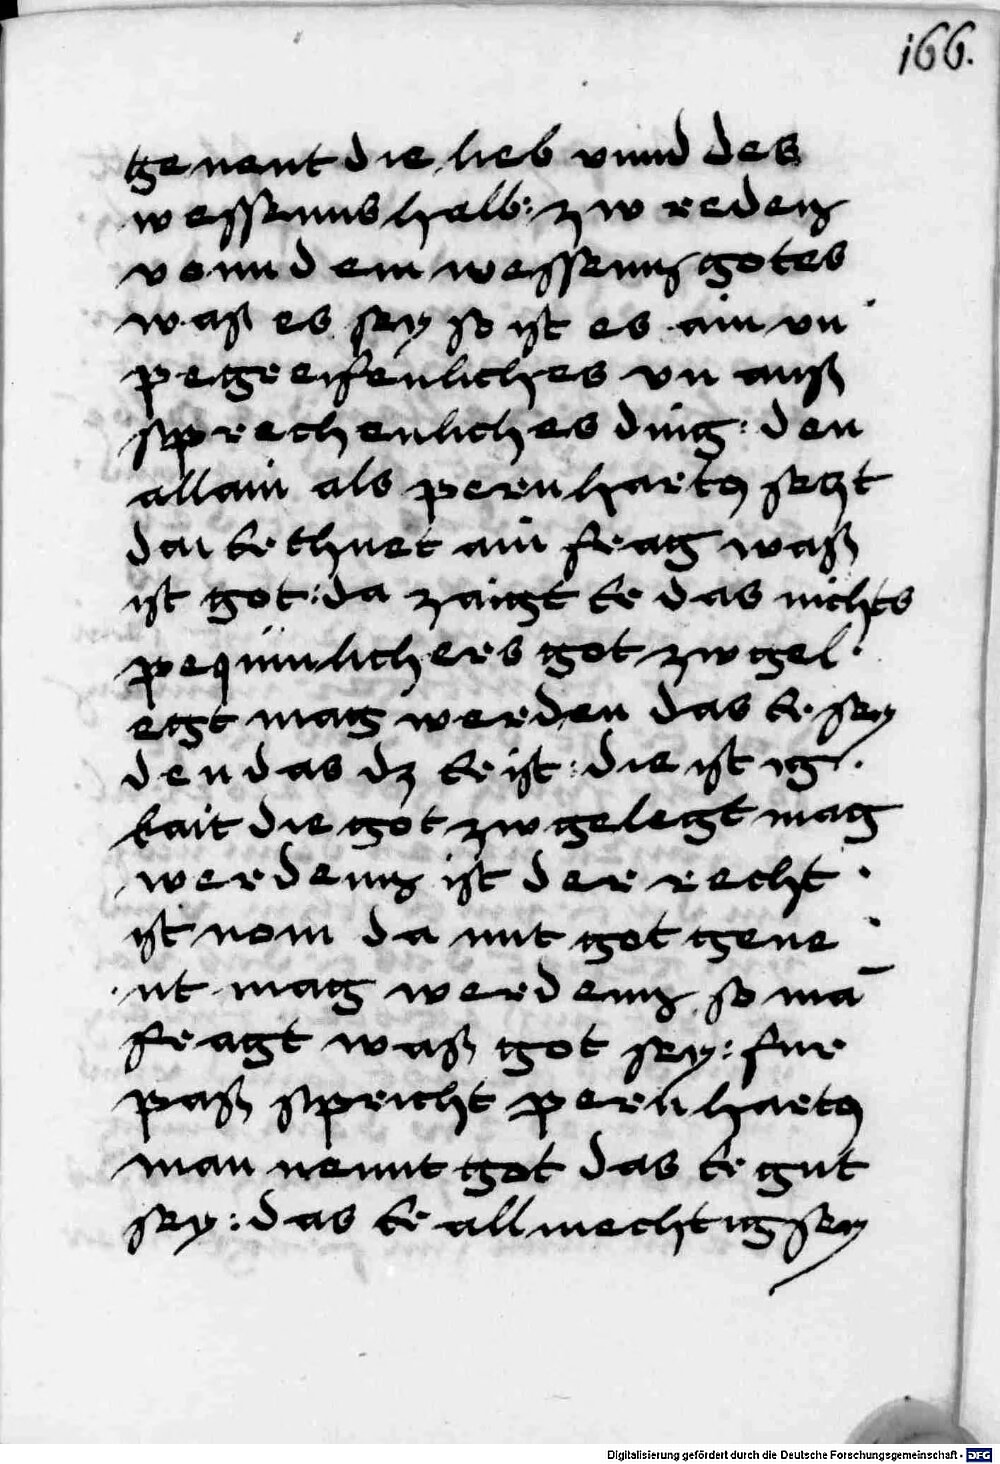 166.
genent die lieb vnnd des
wessenns halb: zw reden
vonn dem wessenns gotes
waß es sey so ist es ain vn
pegreifenliches vn auß
sprechenliches ding: den
allain als pernharty setzt
da er thuet ain frag waß
ist got: da zaigt er das nichts
pequinlichers got zw gel
egt mag werden das er sey
den das dz er ist: die ist ig
kait die got zw gelegt mag
werdenn ist der recht
ist nom da mit got gene
nt mag werdenn so mā
fragt waß got sey: fur
paß spricht pernharty
man nennt got das er gut
sey: das er allmechtig sey
Digitalisierung gefördert durch die Deutsche Forschungsgemeinschaft - DFG